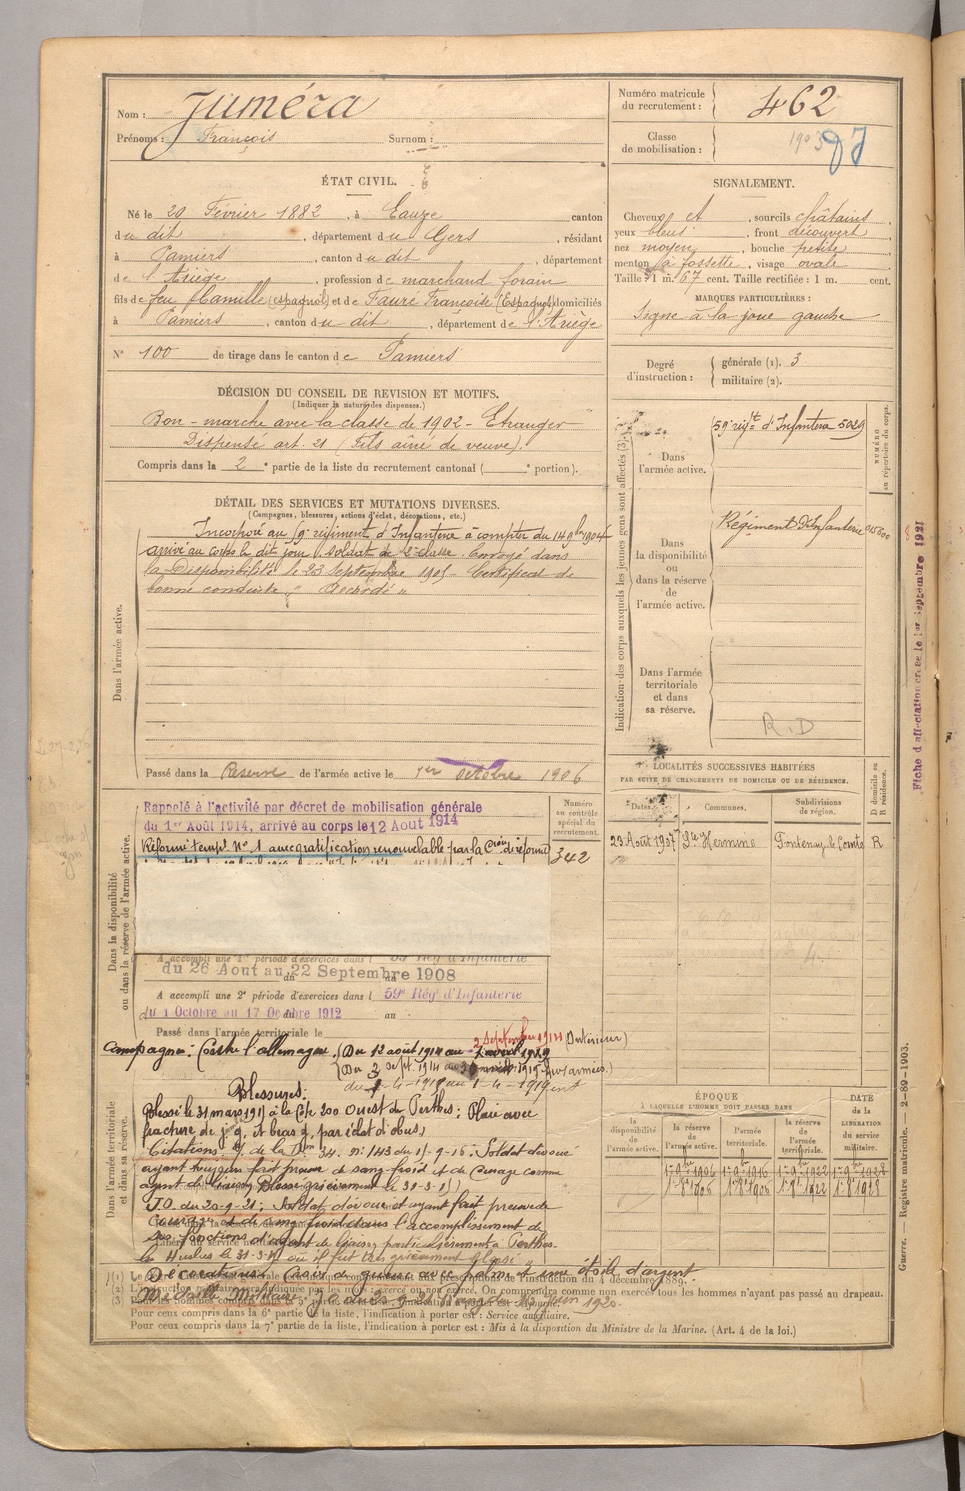 Nom : Juméra
Prénoms : François Surnom :
Numéro matricule du recrutement : 462
Classe de mobilisation : 1903 97
ÉTAT CIVIL.
Né le 20 Février 1882, à Eauze canton
du dit, département du Gers, résidant
à Pamiers, canton du dit, département
de l'Ariège, profession de marchand forain
fils de feu Camille (espagnol) et de Fauré Françoise (Espagnol) domiciliés
à Pamiers, canton du dit, département de l'Ariège
N° 100 de tirage dans le canton de Pamiers
SIGNALEMENT.
Cheveux et, sourcils châtains,
yeux bleus, front découvert
nez moyen, bouche petite
menton à fossette, visage ovale
Taille : 1 m. 67 cent. Taille rectifiée : 1 m. cent.
MARQUES PARTICULIÈRES :
Signe à la joue gauche
Degré d'instruction : générale (1). 3
militaire (2).
DÉCISION DU CONSEIL DE REVISION ET MOTIFS.
(Indiquer la nature des dispenses.)
Bon - marche avec la classe de 1902 - Etranger
Dispensé art. 21 (fils aîné de veuve).
Compris dans la 2e partie de la liste du recrutement cantonal ( e portion).
DÉTAIL DES SERVICES ET MUTATIONS DIVERSES.
(Campagnes, blessures, actions d'éclat, décorations, etc.)
Dans l'armée active.
Incorporé au 59e régiment d'Infanterie à compter du 14 9bre 1904
arrivé au corps le dit jour, soldat de 2e classe. Envoyé dans
la Disponibilité le 23 Septembre 1905 - Certificat de
bonne conduite " Accordé "
Passé dans la Reserve de l'armée active le 1er Octobre 1906
Indication des corps auxquels les jeunes gens sont affectés (3).
NUMÉRO au répertoire du corps.
Dans l'armée active.
59e régt d'Infanterie 5029
Dans la disponibilité ou dans la réserve de l'armée active.
Régiment d'Infanterie
Dans l'armée territoriale et dans sa réserve.
R.D
Fiche d'affectation créée le 1er Septembre 1921
LOCALITÉS SUCCESSIVES HABITÉES
PAR SUITE DE CHANGEMENTS DE DOMICILE OU DE RÉSIDENCE.
Dates. Communes. Subdivisions de région. D domicile ou R résidence.
23 Août 1907 Ste Hermine Fontenay le Comte R
Dans la disponibilité ou dans la réserve de l'armée active.
Rappelé à l'activité par décret de mobilisation générale
du 1er Août 1914, arrivé au corps le 12 Aout 1914
Réformé tempre N° 1 avec gratification renouvelable par la Cion de réforme
Numéro au contrôle spécial du recrutement.
342
A accompli une 1re période d'exercices dans l 59e Rég d'Infanterie
du 26 Aout au 22 Septembre 1908
A accompli une 2e période d'exercices dans l 59e Rég d'Infanterie
du 1 Octobre au 17 Octobre 1912 au
Passé dans l'armée territoriale le
2 Septembre 1914 (Intérieur)
Campagne : Contre l'allemagne. (Du 12 août 1914 au
(Du 3 sept. 1914 au (aux armées.)
au 1-4-1919
Dans l'armée territoriale et dans sa réserve.
Blessures :
Blessé le 31 mars 1915 à la Côte 200 Ouest de Perthes ; Plaie avec
fracture de j. g. et bras g. par éclat d'obus.
Citations de la Don 34. n° 143 du 15-9-16 : Soldat dévoué
ayant toujours fait preuve de sang froid et de courage comme
agent de liaison. Blessé grièvement le 31-3-15)
J.O. du 20-9-21 ; Soldat dévoué et ayant fait preuve de
courage et de sang froid dans l'accomplissement de
ses fonctions d'agent de liaison
le 31-3-15 où il fut très grièvement blessé
Décorations : Croix de guerre avec palme et une étoile d'argent
Médaille Militaire
ÉPOQUE
À LAQUELLE L'HOMME DOIT PASSER DANS
DATE de la LIBÉRATION du service militaire.
la disponibilité de l'armée active. la réserve de l'armée active. l'armée territoriale. la réserve de l'armée territoriale.
1er 9bre 1906 1er 9bre 1916 1er 9bre 1922 1er 9bre 1928
instruction du 4 décembre 1889.
On comprendra comme non exercé tous les hommes n'ayant pas passé au drapeau.
Pour ceux compris dans la 6e partie de la liste, l'indication à porter est : Service auxiliaire.
Pour ceux compris dans la 7e partie de la liste, l'indication à porter est : Mis à la disposition du Ministre de la Marine. (Art. 4 de la loi.)
Guerre. Registre matricule. — 2-89-1903.